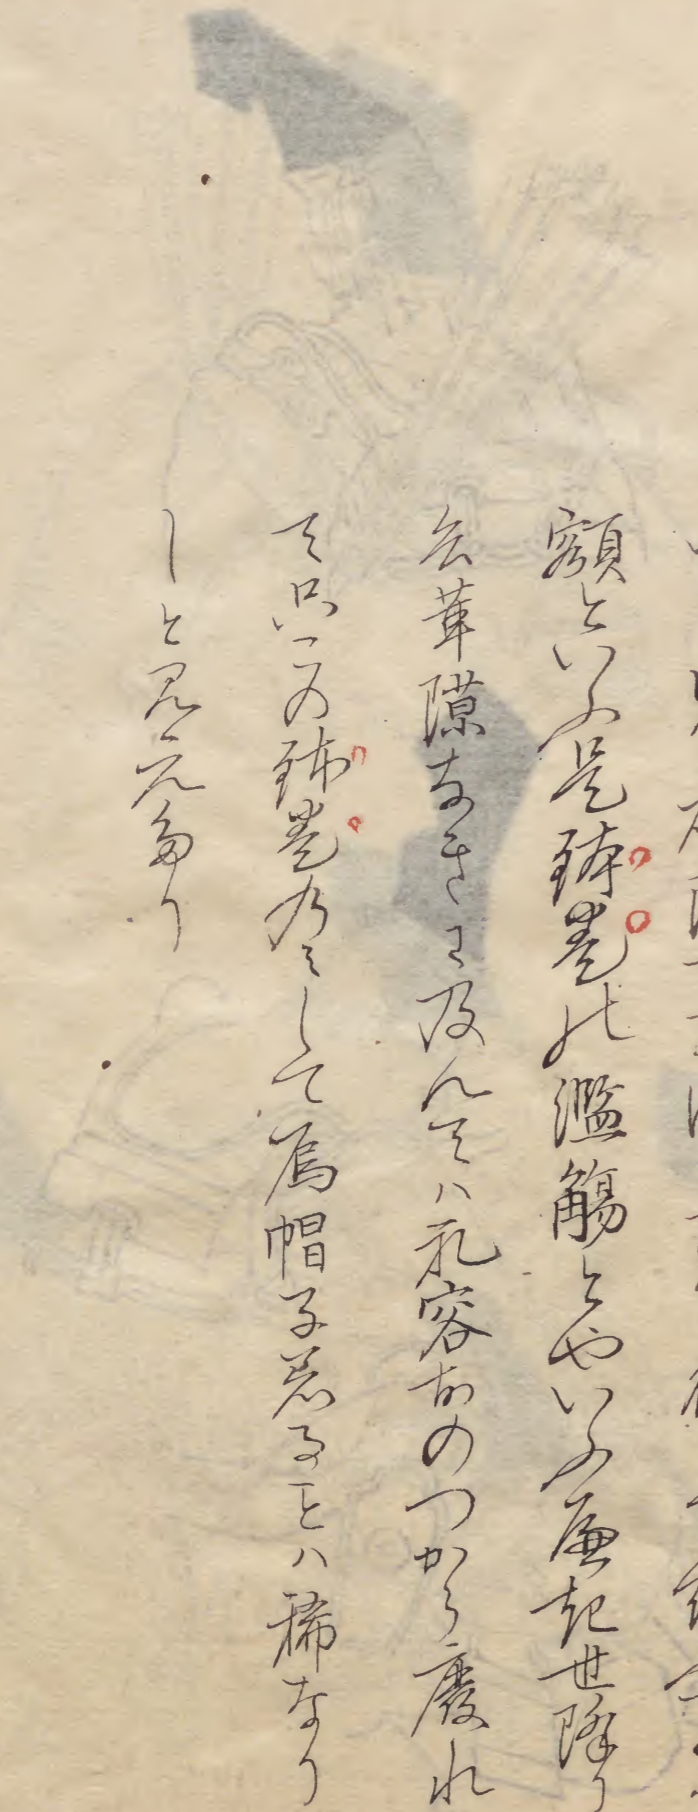 額といふ是鉢巻の濫觴とやいふへき世降り
兵革隙なきに及んてハ礼容おのつから廃れ
て只この鉢巻のミして烏帽子着ることハ稀なり
しと見えたり